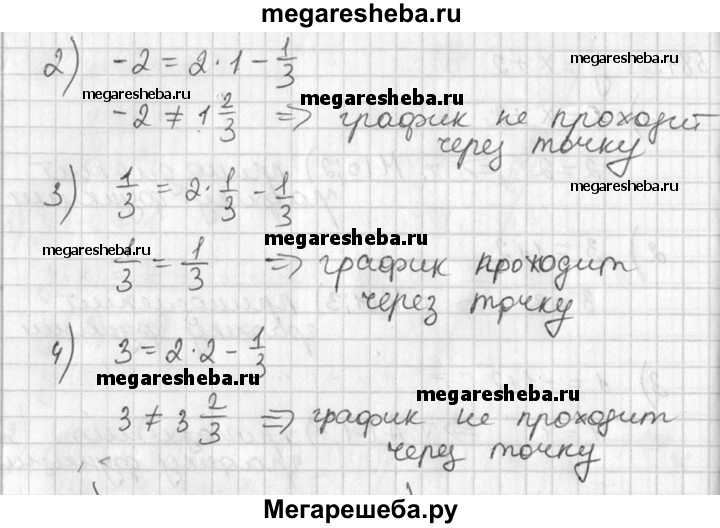 megaresheba.ru
2) -2 = 2·1 - 1/3
megaresheba.ru
megaresheba.ru
megaresheba.ru
-2 ≠ 1 2/3 => график не проходит
через точку
3) 1/3 = 2·1/3 - 1/3
megaresheba.ru
megaresheba.ru
megaresheba.ru
1/3 = 1/3 => график проходит
через точку
megaresheba.ru
4) 3 = 2·2 - 1/3
megaresheba.ru
megaresheba.ru
3 ≠ 3 2/3 => график не проходит
через точку
Мегарешеба.ру